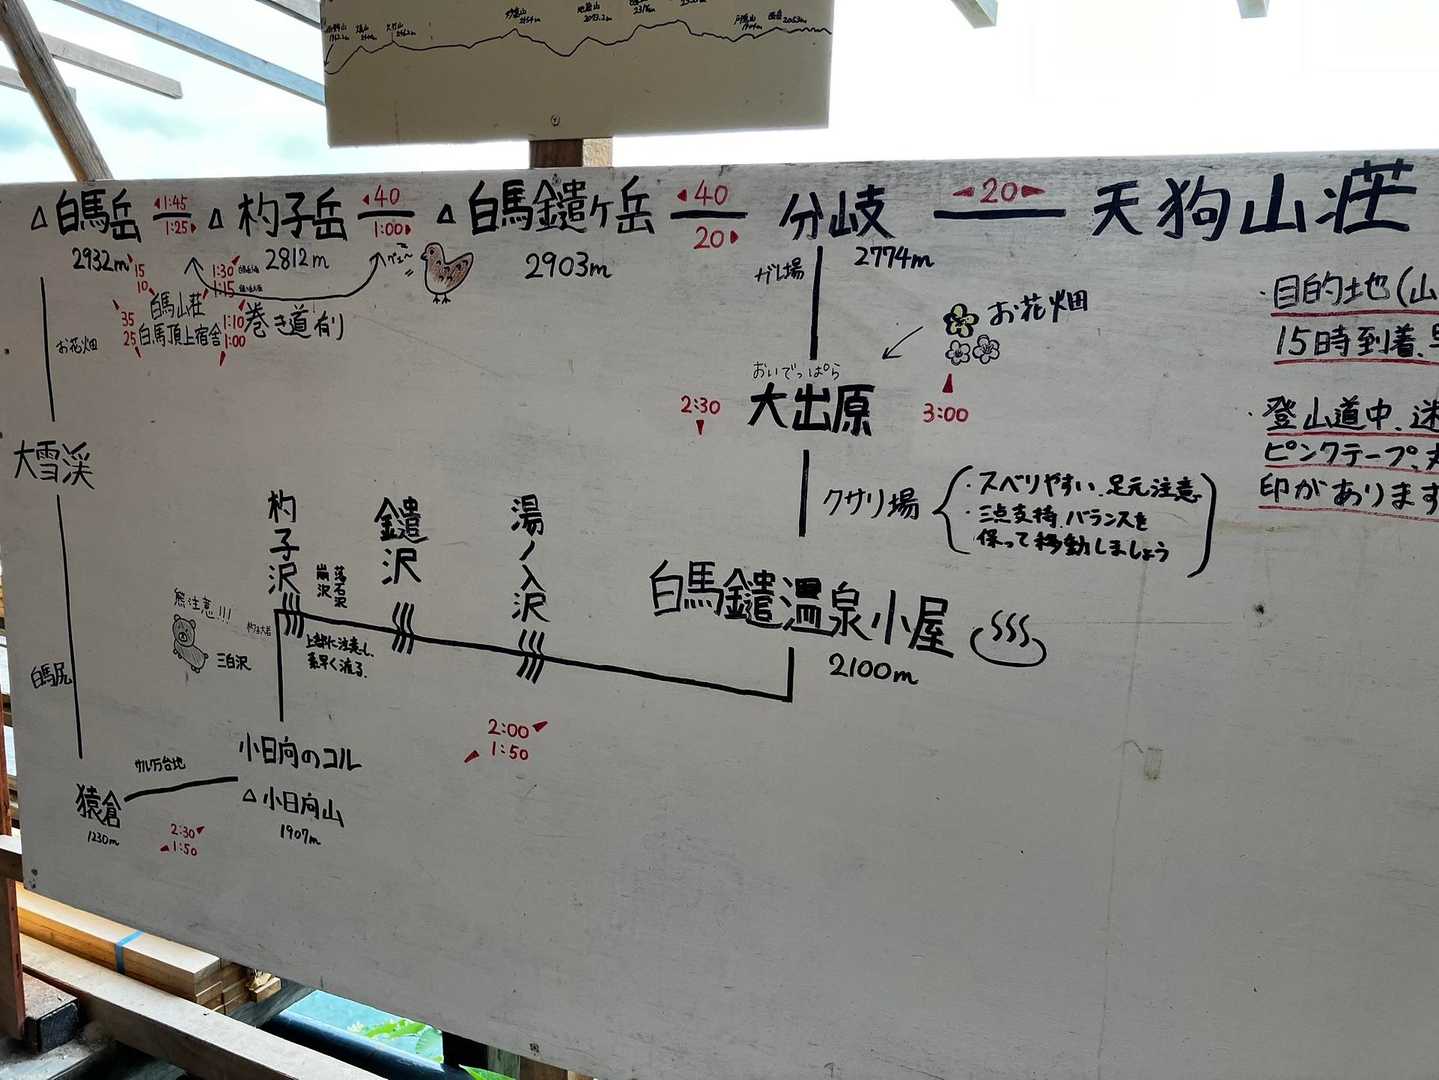 白馬岳
2932m
1:45
1:25
杓子岳
2812m
40
1:00
白馬鑓ヶ岳
2903m
40
20
分岐
2774m
20
天狗山荘
15
10
1:30
1:15
白馬山荘
白馬頂上宿舎
35
25
1:10
1:00
巻き道有り
お花畑
大雪渓
白馬尻
猿倉
1230m
サル万台地
2:30
1:50
小日向のコル
小日向山
1907m
熊注意!!!
三白沢
杓子沢
崩沢
落石沢
上部に注意し、
素早く渡る。
鑓沢
湯ノ入沢
2:00
1:50
ガレ場
お花畑
おいでっぱら
大出原
2:30
3:00
クサリ場
・スベりやすい、足元注意
・三点支持、バランスを
保って移動しましょう
白馬鑓温泉小屋
2100m
・目的地(山
15時到着、早
・登山道中、迷
ピンクテープ、
印があります